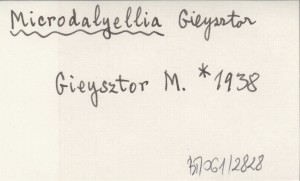 Microdalyellia Gieysztor
Gieysztor M. *1938